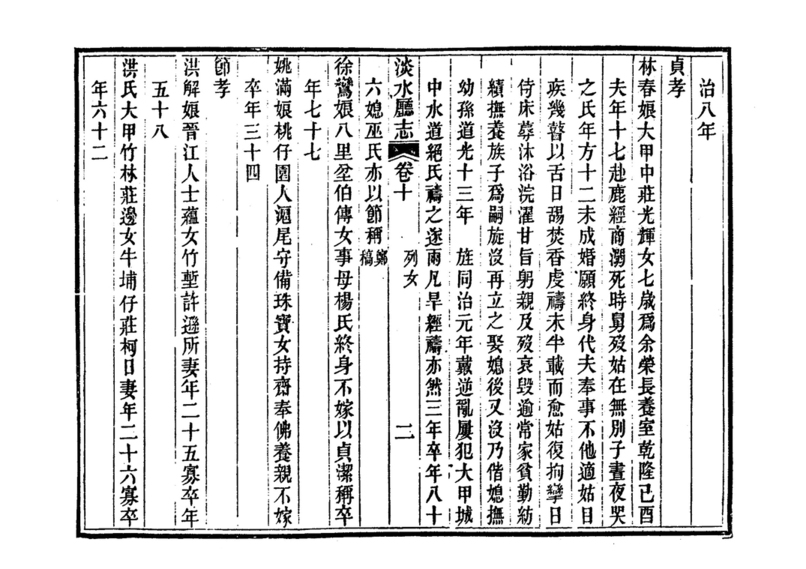 治八年
貞孝
林春娘大甲中莊光輝女七歲爲余榮長養室乾隆己酉
夫年十七赴鹿經商溺死時舅歿姑在無別子晝夜哭
之氏年方十二未成婚願終身代夫奉事不他適姑目
疾幾瞽以舌日舐焚香虔禱未半載而愈姑復拘攣日
侍床蓐沐浴浣濯甘旨躬親及歿哀毀逾常家貧勤紡
績撫養族子爲嗣旋沒再立之娶媳後又沒乃偕媳撫
幼孫道光十三年 旌同治元年戴逆亂屢犯大甲城
中水道絕氏禱之遂雨凡旱經禱亦然三年卒年八十
淡水廳志 卷十 列女 二
六媳巫氏亦以節稱 鄭稿
徐鸞娘八里坌伯傳女事母楊氏終身不嫁以貞潔稱卒
年七十七
姚滿娘桃仔園人滬尾守備珠寶女持齋奉佛養親不嫁
卒年三十四
節孝
洪解娘晉江人士蘊女竹塹許遜所妻年二十五寡卒年
五十八
洪氏大甲竹林莊邊女牛埔仔莊柯日妻年二十六寡卒
年六十二